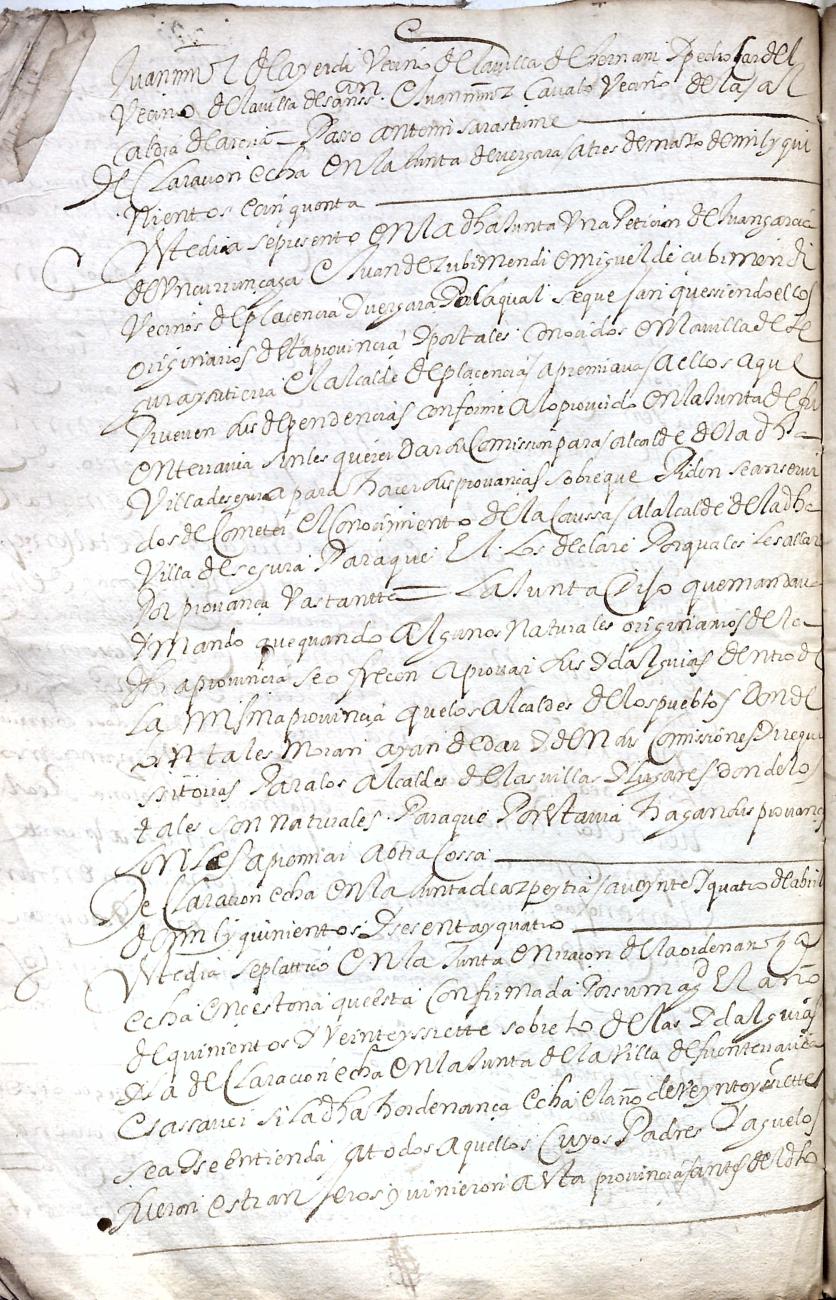 Juan mnz de layerdi Vecino de la villa de hernani y pedro
Vecino de la villa de san ssn. E Juan mnz Cavalo Vecino de la al
caldia de arería = Passo ante mi sarastume
De Claracion echa en la Junta de vergara a tres de mayo de mil y qui
nientos e cinquenta
Este dia se presento en la dha Junta Vna Peticion de Juan garcia
de Yncurrunçaga E Juan de Zubimendi e miguel de cubimendi
Vecinos de placencia y vergara Por la qual se quejan que siendo ellos
originarios desta provincia y portales conocidos en la villa de Se
gura y su tierra El alcalde de placencia apremiava a ellos a que
Prueven sus dependencias conforme a lo proveido en la Junta de fu
enterravia sin les querer dar su Comission para el alcalde de la dha
Villa de segura para hacer sus provanças sobre que Piden sean servi
dos de Cometer el Conocimiento de la Caussa al alcalde de la dha
Villa de segura Para que El Los declare Por quales les allare
Por provança Vastantte = La Junta Dijo que mandava
y mando que quando algunos Naturales originarios de la
dha provincia se ofrecen a provar sus ydalguias dentro de
la misma provincia que los alcaldes de los pueblos donde
on tales moran ayan de dar y den sus Comissiones y requi
ssitorias Para los alcaldes de las villas y lugares donde los
tales son naturales Para que Por Esta via hagan sus provanças
son les apremiar a otra Cossa
De Claracion echa en la Junta de azpeytia a veynte y quatro de abril
de mil y quinientos y sesenta y quatro
Este dia se plattico en la Junta en racon de la ordenanza
echa en cestona que esta confirmada Por su magd El año
de quinientos y Veinte y ssiette sobre lo de las ydalguias
y la de Claracion echa en la Junta de la Villa de fuenteravia
Es a saver si la dha hordenança echa el año de veynte y siette
sea y se entienda a todos aquellos cuyos Padres y aguelos
fueron estranjeros y vinieron a esta provincia antes del dho